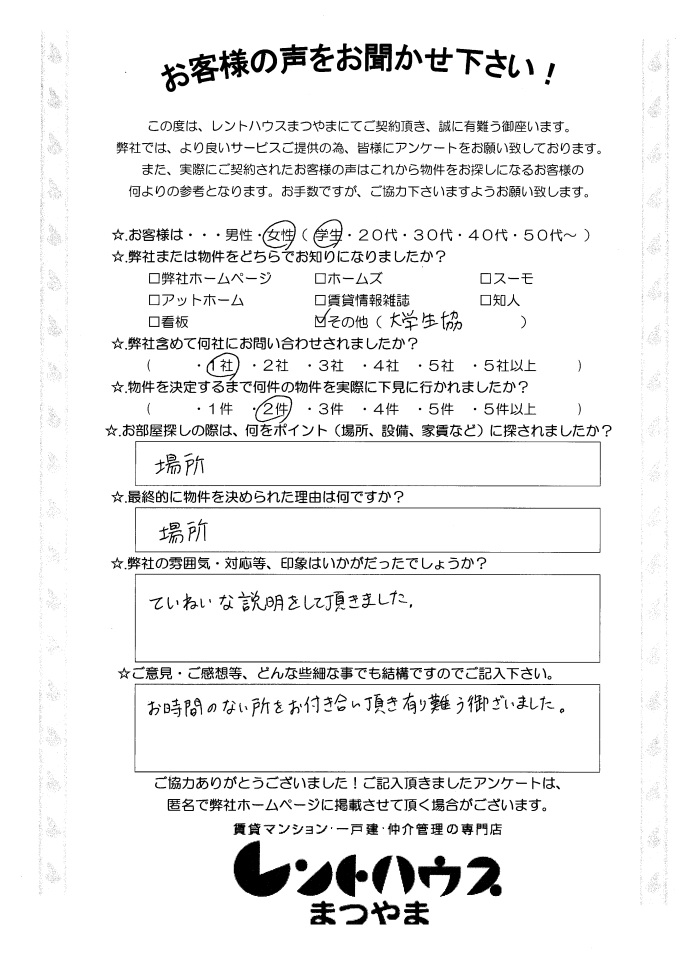 お客様の声をお聞かせ下さい！
この度は、レントハウスまつやまにてご契約頂き、誠に有難う御座います。
弊社では、より良いサービスご提供の為、皆様にアンケートをお願い致しております。
また、実際にご契約されたお客様の声はこれから物件をお探しになるお客様の
何よりの参考となります。お手数ですが、ご協力下さいますようお願い致します。
☆.お客様は・・・男性・女性（ 学生・２０代・３０代・４０代・５０代～ ）
☆.弊社または物件をどちらでお知りになりましたか？
□弊社ホームページ □ホームズ □スーモ
□アットホーム □賃貸情報雑誌 □知人
□看板 ☑その他（ 大学生協 ）
☆.弊社含めて何社にお問い合わせされましたか？
（ ・１社 ・２社 ・３社 ・４社 ・５社 ・５社以上 ）
☆.物件を決定するまで何件の物件を実際に下見に行かれましたか？
（ ・１件 ・２件 ・３件 ・４件 ・５件 ・５件以上 ）
☆.お部屋探しの際は、何をポイント（場所、設備、家賃など）に探されましたか？
場所
☆.最終的に物件を決められた理由は何ですか？
場所
☆.弊社の雰囲気・対応等、印象はいかがだったでしょうか？
ていねいな説明をして頂きました.
☆ご意見・ご感想等、どんな些細な事でも結構ですのでご記入下さい。
お時間のない所をお付き合い頂き有り難う御ざいました。
ご協力ありがとうございました！ご記入頂きましたアンケートは、
匿名で弊社ホームページに掲載させて頂く場合がございます。
賃貸マンション・一戸建・仲介管理の専門店
レントハウス
まつやま